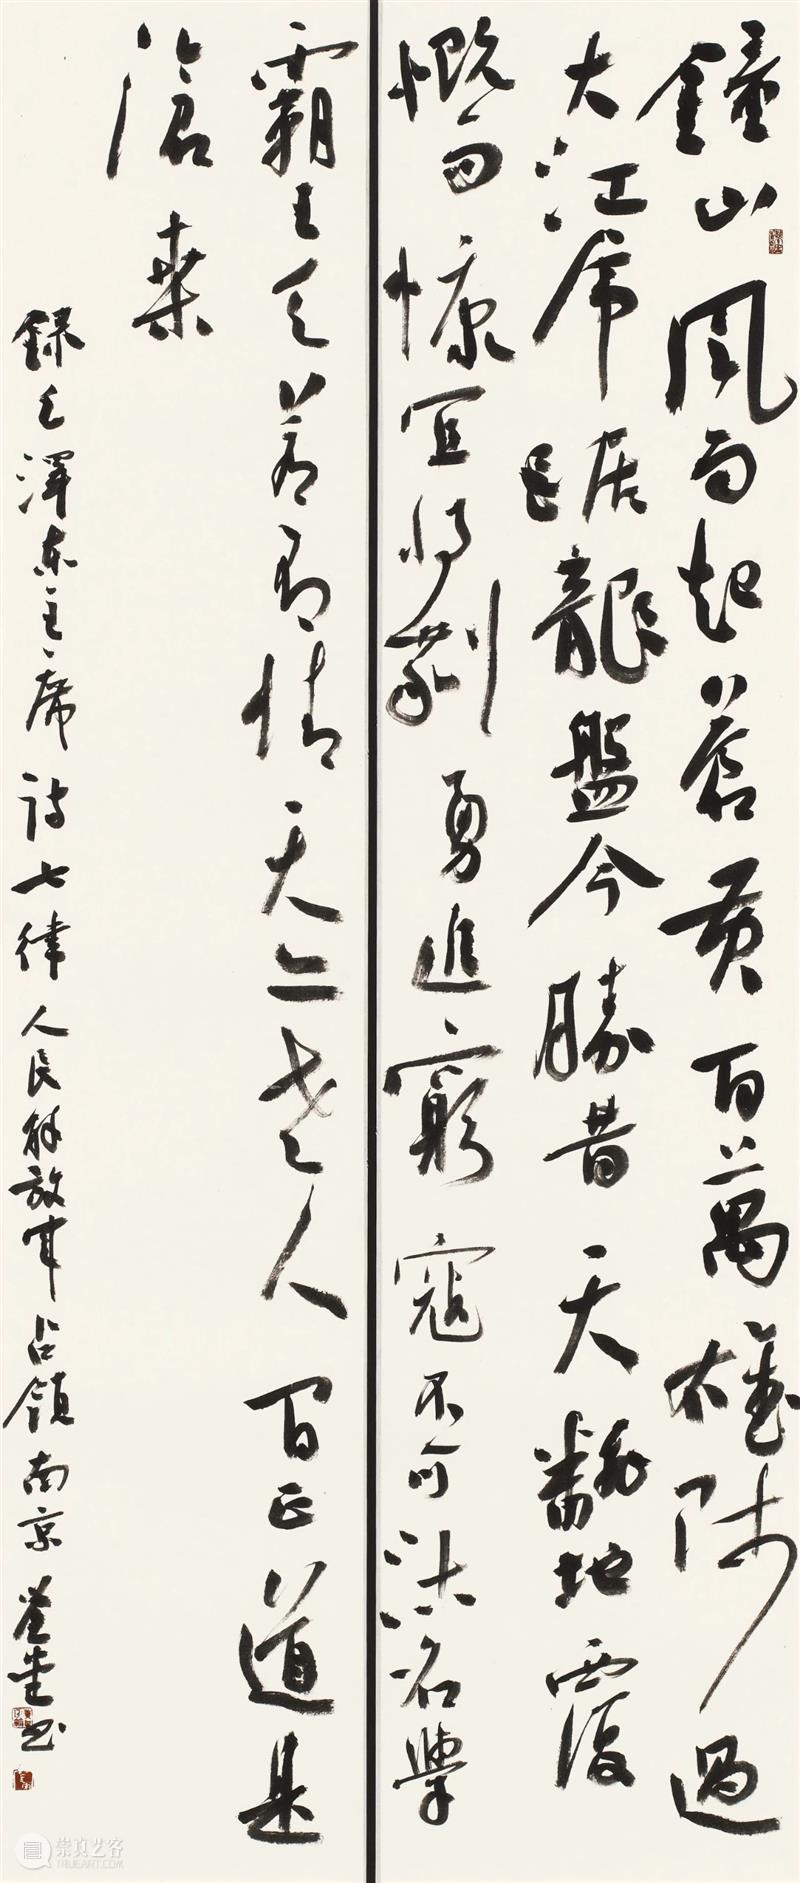 鐘山風雨起蒼黃百萬雄師過
大江虎踞龍盤今勝昔天翻地覆
慨而慷宜將剩勇追窮寇不可沽名學
霸王天若有情天亦老人間正道是
滄桑
錄毛澤東主席詩七律人民解放軍占領南京 书
崇真艺客
TRUEART.COM